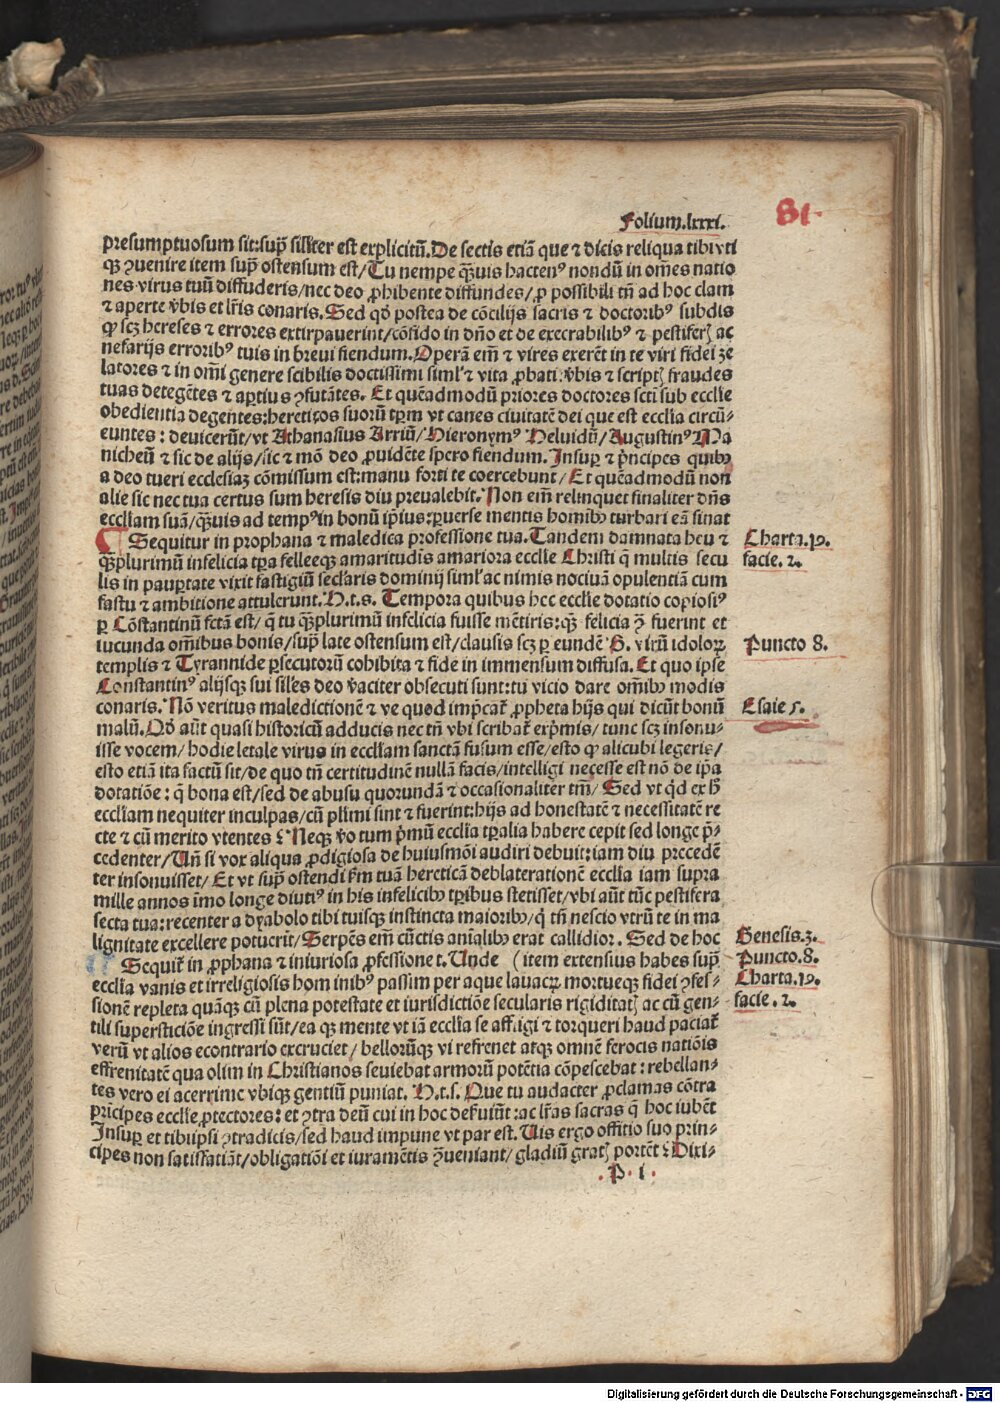 Folium.lxxxi.
81.
presumptuosum sit:sup̄ siľiter est explicitū.De sectis etiā que ⁊ dicis reliqua tibi vti
qꝫ ꝯuenire item sup̄ ostensum est/Tu nempe qꝫuis hacten⁹ nondū in om̄es natio
nes virus tuū diffuderis/nec deo ꝓhibente diffundes/ꝓ possibili tn̄ ad hoc clam
⁊ aperte v̄bis et lr̄is conaris.Sed qð postea de cōcilijs sacris ⁊ doctorib⁹ subdis
ꝙ scꝫ hereses ⁊ errores extirpauerint/cōfido in dn̄o et de execrabilib⁹ ⁊ pestiferꝭ ac
nefarijs errorib⁹ tuis in breui fiendum.Operā em̄ ⁊ vires exerēt in te viri fidei ze
latores ⁊ in om̄i genere scibilis doctissimi simľ ⁊ vita ꝓbati v̄bis ⁊ scriptꝭ fraudes
tuas detegētes ⁊ aꝑtius ꝯfutātes. Et quēadmodū priores doctores scti sub ecclie
obedientia degentes:hereticos suorū tꝑm vt canes ciuitatē dei que est ecclia circū-
euntes : deuicerūt/vt Athanasius Arriū/Hieronym⁹ Heluidū/Augustin⁹ Ma
nicheū ⁊ sic de alijs/sic ⁊ mō deo ꝓuidēte spero fiendum.Insuꝑ ⁊ prīcipes quibꝫ
a deo tueri ecclesiaꝫ cōmissum est:manu forti te coercebunt/Et quēadmodū non
alie sic nec tua certus sum heresis diu preualebit.Non em̄ relinquet finaliter dn̄s
eccliam suā/qꝫuis ad temp⁹in bonū ip̄ius:ꝑuerse mentis homibꝫ turbari eā sinat
Sequitur in prophana ⁊ maledica professione tua.Tandem damnata heu ⁊
qꝫplurimū infelicia tꝑa felleeqꝫ amaritudīs amariora ecclie Christi q̄ multis secu
lis in pauꝑtate vixit fastigiū secľaris dominij simľ ac nimis nociuā opulentiā cum
fastu ⁊ ambitione attulerunt.H.t.s. Tempora quibus hec ecclie dotatio copiosi⁹
ꝑ Cōstantinū fctā est/q̄ tu qꝫplurimū infelicia fuisse mētiris:qꝫ felicia ꝯ̄ fuerint et
iucunda om̄ibus bonis/sup̄ late ostensum est/clausis scꝫ ꝑ eundē S. virū idoloꝝ
templis ⁊ Tyrannide ꝑsecutorū cohibita ⁊ fide in immensum diffusa.Et quo ipse
Constantin⁹ alijsqꝫ sui siles deo v̄aciter obsecuti sunt:tu vicio dare om̄ibꝫ modis
conaris.Nō veritus maledictionē ⁊ ve quod imp̄cat̄ ꝓpheta hijs qui dicūt bonū
malū.Qð aūt quasi historicū adducis nec tn̄ vbi scribat̄ exp̄mis/tunc scꝫ insonu-
isse vocem/hodie letale virus in eccliam sanctā fusum esse/esto ꝙ alicubi legeris/
esto etiā ita factū sit/de quo tn̄ certitudinē nullā facis/intelligi necesse est nō de ip̄a
dotatiōe: q̄ bona est/sed de abusu quorundā ⁊ occasionaliter tm̄/ Sed vt qd ex h̄
eccliam nequiter inculpas/cū plīmi sint ⁊ fuerint:hijs ad honestatē ⁊ necessitatē re
cte ⁊ cū merito vtentes ? Neqꝫ v̄o tum p̄mū ecclia tꝑalia habere cepit sed longe p̄-
cedenter/Un̄ si vox aliqua ꝓdigiosa de huiusmōi audiri debuit:iam diu precedē
ter insonuisset/ Et vt sup̄ ostendi f̄m tuā hereticā deblaterationē ecclia iam supra
mille annos īmo longe diuti⁹ in his infelicibꝫ tꝑibus stetisset/vbi aūt tūc pestifera
secta tua:recenter a dyabolo tibi tuisqꝫ instincta maioribꝫ/q̄ tn̄ nescio vtrū te in ma
lignitate excellere potuerit/Serpēs em̄ cūctis anīalibꝫ erat callidior. Sed de hoc
Sequit̄ in ꝓphana ⁊ iniuriosa ꝓfessione t. Unde (item extensius habes sup̄
ecclia vanis et irreligiosis hominib⁹ passim per aque lauacꝝ mortueqꝫ fidei ꝯfes-
sionē repleta quāqꝫ cū plena potestate et iurisdictiōe secularis rigiditatꝭ ac cū gen-
tili supersticiōe ingressi sūt/ea qꝫ mente vt iā ecclia se affligi ⁊ torqueri haud paciat̄
verū vt alios econtrario excruciet/ bellorūqꝫ vi refrenet atqꝫ omnē ferocis natiōis
effrenitatē qua olim in Christianos seuiebat armorū potētia cōpescebat : rebellan-
tes vero ei acerrime vbiqꝫ gentiū puniat. H.t.s. Que tu audacter ꝓclamas cōtra
prīcipes ecclie ꝓtectores: et ꝯtra deū cui in hoc defuiūt:ac lr̄as sacras q̄ hoc iubēt
Insuꝑ et tibiipsi ꝯtradicis/sed haud impune vt par est. Uis ergo offitio suo prin-
cipes non satisfatiāt/obligatiōi et iuramētis ꝯueniant/gladiū gratꝭ portēt ? Dixi-
.P.i.
Charta.19.
facie.2.
Puncto 8.
Esaie 5.
Genesis.3.
Puncto.8.
Charta.19.
facie.2.
Digitalisierung gefördert durch die Deutsche Forschungsgemeinschaft - DFG